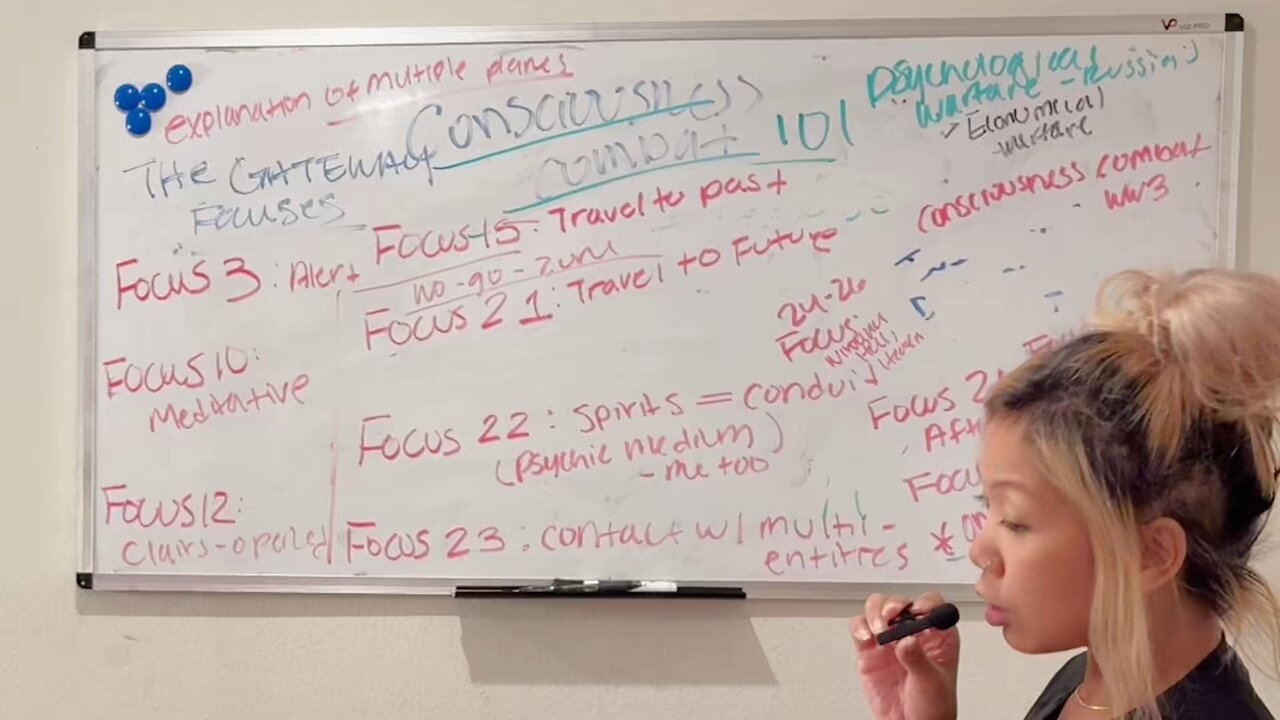 VIZ-PRO
explanation of multiple planes
Consciousness
combat 101
Psychological
warfare - Russians
Economical
warfare
THE GATEWAY
Focuses
consciousness combat
WW3
Focus 15: Travel to past
Focus 3: Alert
no-go-zone
Focus 21: Travel to Future
24-26
Focus:
Hell,
Heaven
Focus 10:
Meditative
Focus 22: spirits = conduit
(psychic medium)
- me too
Focus 2
Aft
Focu
Focus 12:
Clairs-opened
Focus 23: contact w/ multi-
entities
*